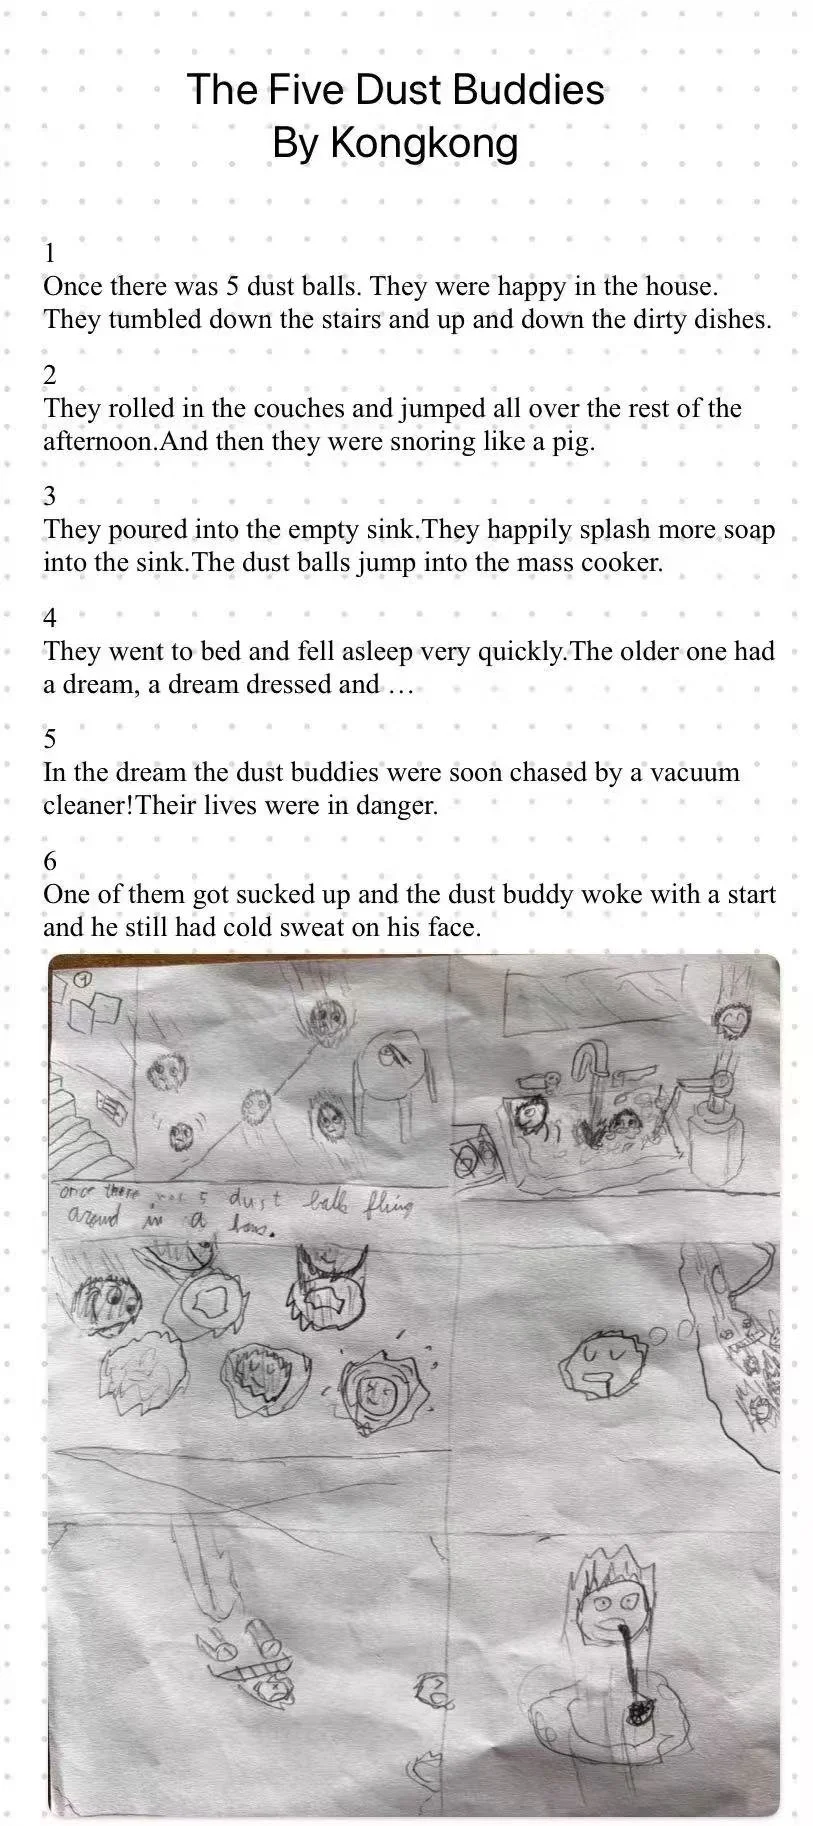 The Five Dust Buddies
By Kongkong
1
Once there was 5 dust balls. They were happy in the house.
They tumbled down the stairs and up and down the dirty dishes.
2
They rolled in the couches and jumped all over the rest of the
afternoon.And then they were snoring like a pig.
3
They poured into the empty sink.They happily splash more soap
into the sink.The dust balls jump into the mass cooker.
4
They went to bed and fell asleep very quickly.The older one had
a dream, a dream dressed and …
5
In the dream the dust buddies were soon chased by a vacuum
cleaner!Their lives were in danger.
6
One of them got sucked up and the dust buddy woke with a start
and he still had cold sweat on his face.
1
once there was 5 dust balls fling
around in a